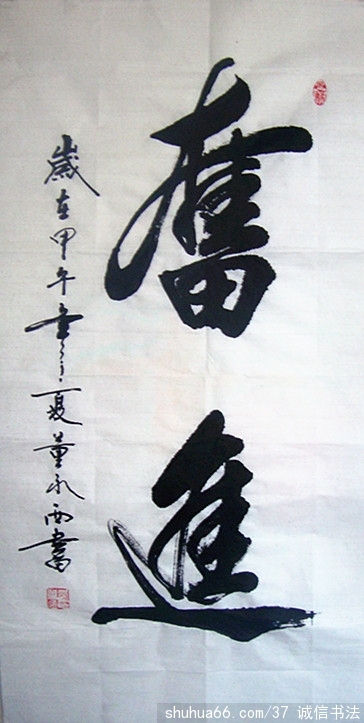 奮
進
歲在甲午年夏董永西書
shuhua66.com/37 诚信书法